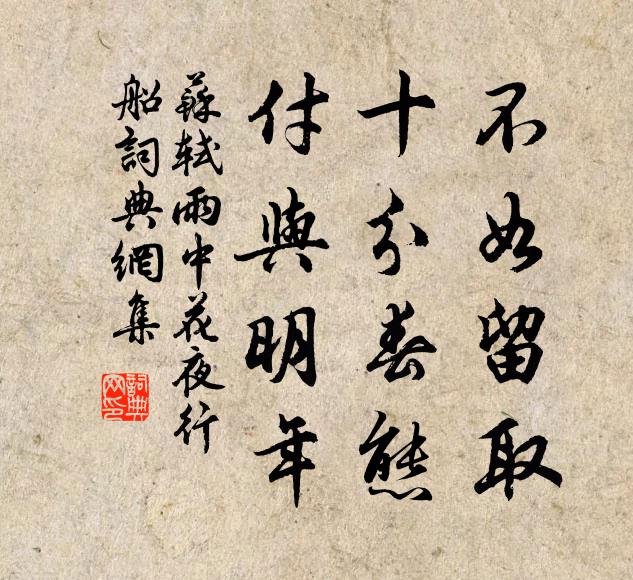 不如留取
十分春態
付與明年
蘇軾雨中花夜行
船詞典網集
詞典網印